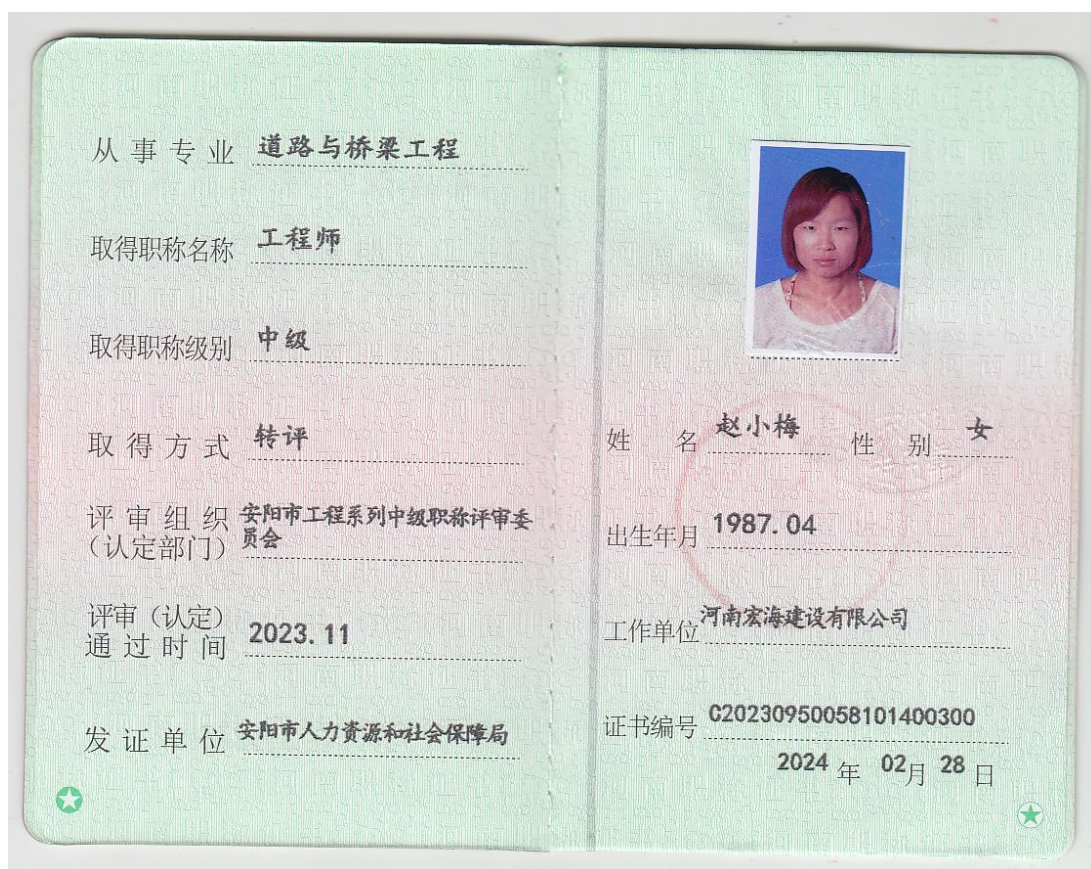 从事专业 道路与桥梁工程
取得职称名称 工程师
取得职称级别 中级
取得方式 转评
评审组织 安阳市工程系列中级职称评审委
（认定部门） 员会
评审（认定）
通过时间 2023.11
发证单位 安阳市人力资源和社会保障局
姓名 赵小梅 性别 女
出生年月 1987.04
工作单位 河南宏海建设有限公司
证书编号 C20230950058101400300
2024 年 02月 28 日